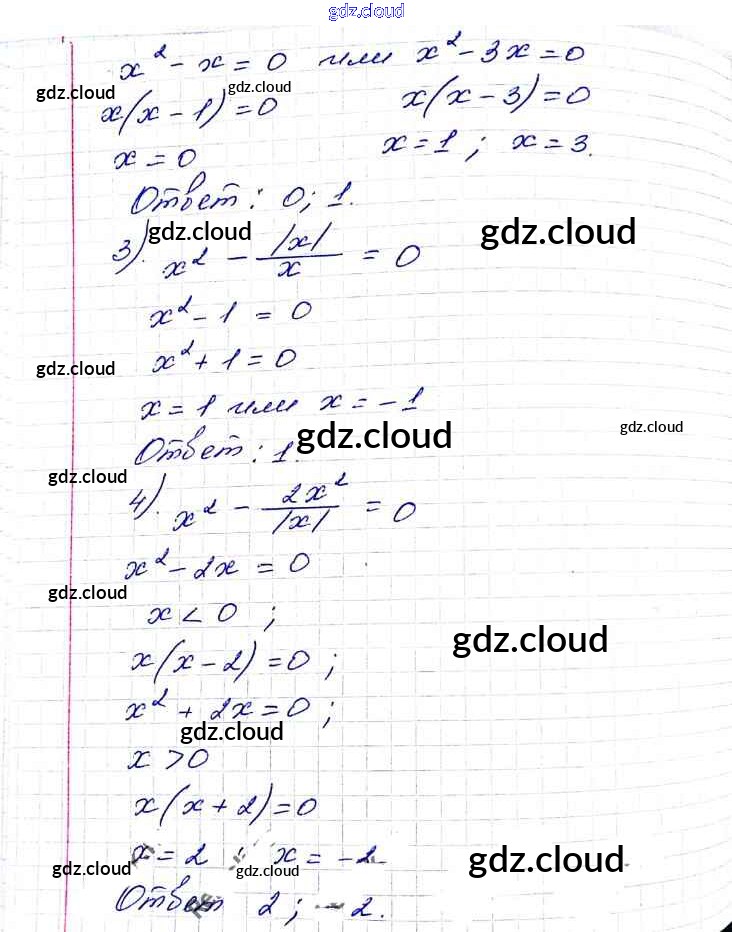 gdz.cloud
gdz.cloud
x² - x = 0 или x² - 3x = 0
gdz.cloud gdz.cloud
x(x - 1) = 0 x(x - 3) = 0
x = 0 x = 1 ; x = 3.
Ответ: 0; 1.
gdz.cloud gdz.cloud
3). x² - |x|/x = 0
x² - 1 = 0
gdz.cloud
x² + 1 = 0
x = 1 или x = -1
gdz.cloud gdz.cloud
Ответ: 1.
gdz.cloud
4). x² - 2x²/|x| = 0
x² - 2x = 0
gdz.cloud
x < 0 ;
gdz.cloud
x(x - 2) = 0 ;
x² + 2x = 0 ;
gdz.cloud
x > 0
x(x + 2) = 0
x = 2 ; x = -2
gdz.cloud gdz.cloud gdz.cloud
Ответ 2 ; -2.